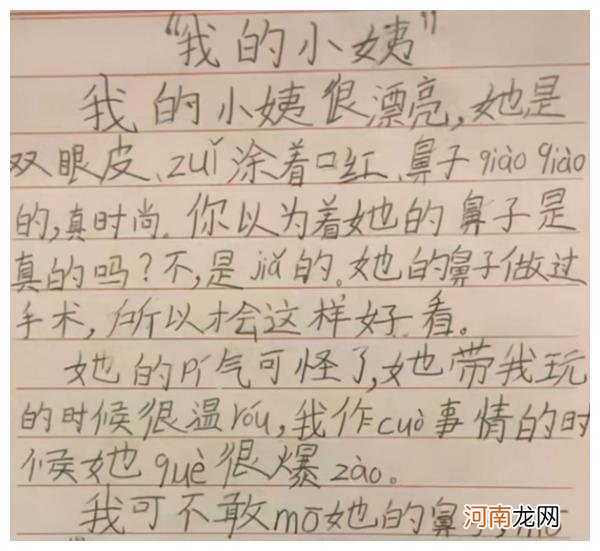 "我的小姨"
我的小姨很漂亮,她是
双眼皮、zuǐ涂着口红、鼻子qiào qiào
的,真时尚。你以为着她的鼻子是
真的吗?不,是jiǎ的。她的鼻子做过
手术,所以才会这样好看。
她的pí气可怪了,她带我玩
的时候很温róu,我作cuò事情的时
候她què很爆zào。
我可不敢mō她的鼻子,mō
河南龙网